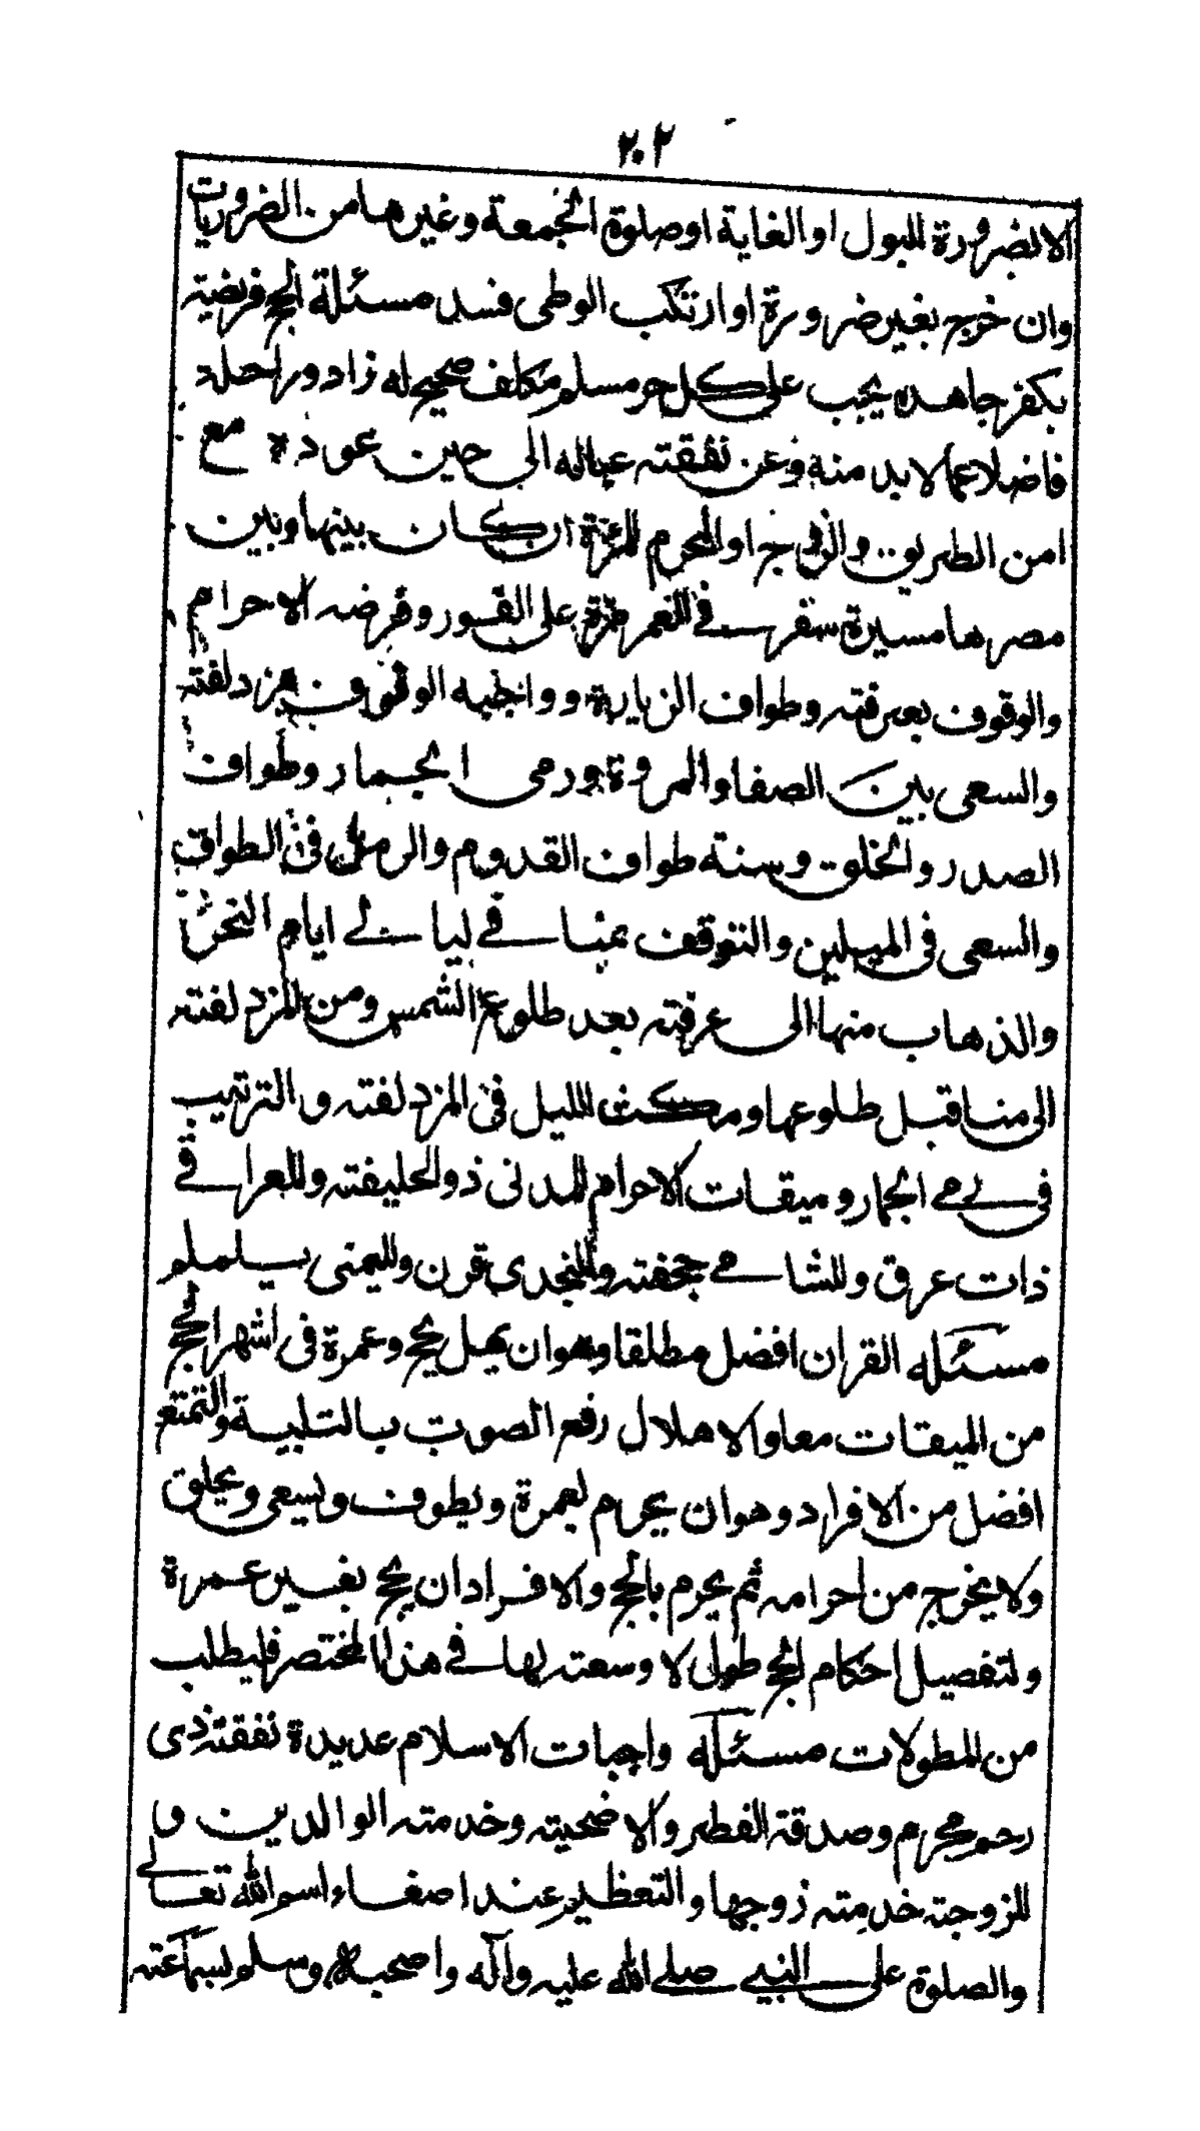 ٢٠٢
الا لضرورة للبول او الغاية او صلوة الجمعة وغيرها من الضروريات
وان خرج بغير ضرورة او ارتكب الوطى فسد مسئلة الحج فريضته
يكفر جاهده يجب على كل حر مسلم مكلف صحيح له زاد وراحلة
فاضلا عما لا بد منه وعن نفقته عياله الى حين عوده مع
امن الطريق والزوج او المحرم للمرئة ان كان بينها وبين
مصرها مسيرة سفر في العمر مرة على الفور وفرضه الاحرام
والوقوف بعرفته وطواف الزيارة وواجبه الوقوف بمزدلفته
والسعى بين الصفا والمروة ورمى الجمار وطواف
الصدر والحلق وسنته طواف القدوم والرمل فى الطواف
والسعى فى الميلين والتوقف بمنا في ليالي ايام النحر
والذهاب منها الى عرفته بعد طلوع الشمس ومن المزدلفته
الى منا قبل طلوعها ومكث الليل فى المزدلفته والترتيب
فى رمي الجمار وميقات الاحرام للمدنى ذوالحليفته وللعراقي
ذات عرق وللشامي جحفته وللنجدى قرن ولليمنى يلملم
مسئله القران افضل مطلقا وهوان يهل بحج وعمرة فى اشهر الحج
من الميقات معا والاهلال رفع الصوت بالتلبية والتمتع
افضل من الافراد وهوان يحرم بعمرة ويطوف ويسعى ويحلق
ولا يخرج من احرامه ثم يحرم بالحج والافراد ان يحج بغير عمرة
ولتفصيل احكام الحج طول لا وسعته لها في هذا المختصر فليطلب
من المطولات مسئله واجبات الاسلام عديدة نفقته ذى
رحم محرم وصدقة الفطر والاضحيته وخدمته الوالدين و
للزوجته خدمته زوجها والتعظيم عند اصغاء اسم الله تعالي
والصلوة على النبي صلي الله عليه وآله واصحبه وسلم لسماعته